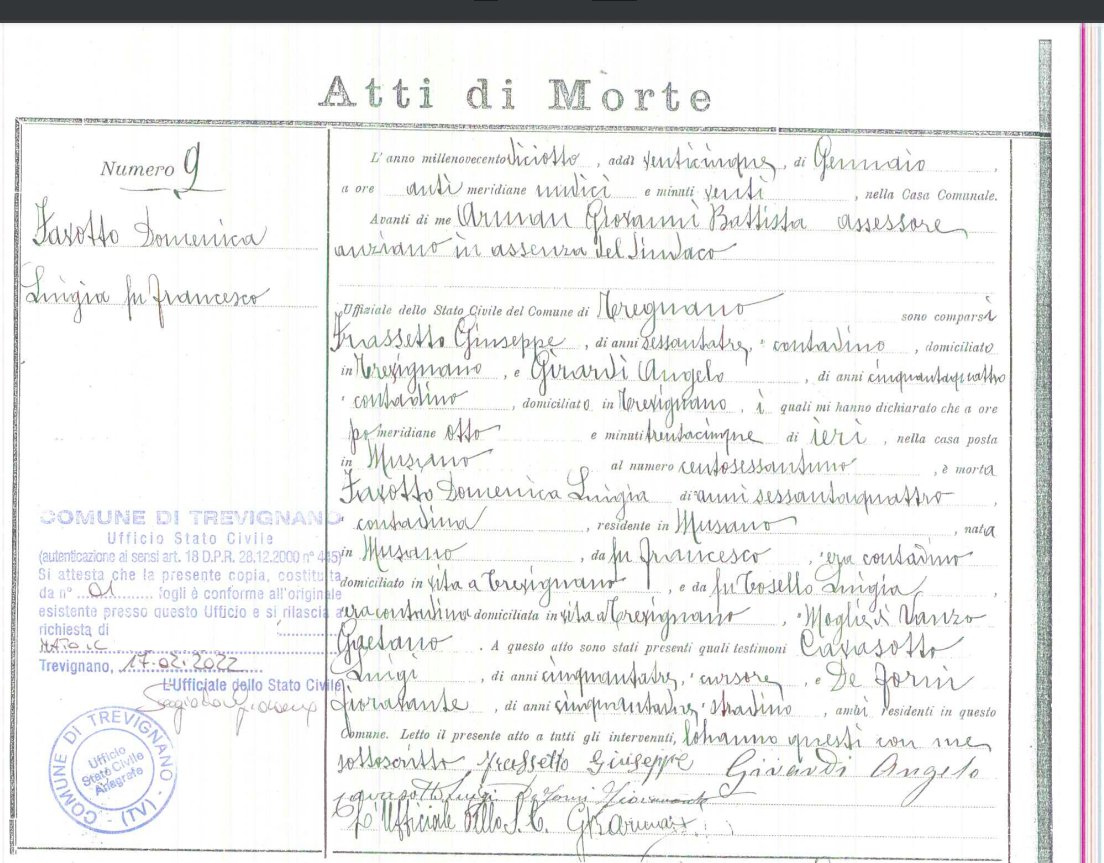 Atti di Morte
Numero 9
Favotto Domenica
Luigia fu Francesco
L'anno millenovecento diciotto, addì venticinque, di Gennaio,
a ore anti meridiane undici e minuti venti, nella Casa Comunale.
Avanti di me Arman Giovanni Battista assessore
anziano in assenza del Sindaco
Uffiziale dello Stato Civile del Comune di Trevignano sono comparsi
Frassetto Giuseppe, di anni sessantatre, contadino, domiciliato
in Trevignano, e Girardi Angelo, di anni cinquantaquattro
contadino, domiciliato in Trevignano, i quali mi hanno dichiarato che a ore
po meridiane otto e minuti trentacinque di ieri, nella casa posta
in Musano al numero centosessantuno, è morta
Favotto Domenica Luigia di anni sessantaquattro,
contadina, residente in Musano, nata
in Musano, da fu Francesco, era contadino
domiciliato in vita a Trevignano, e da fu Tosello Luigia,
era contadina domiciliata in vita a Trevignano, Moglie di Vanzo
Gaetano. A questo atto sono stati presenti quali testimoni Cavasotto
Luigi, di anni cinquantatre, cursore, e De Forni
Fioravante, di anni cinquantatre, stradino, ambi residenti in questo
Comune. Letto il presente atto a tutti gli intervenuti, lo hanno questi con me
sottoscritto Frassetto Giuseppe Girardi Angelo
Cavasotto Luigi De Forni Fioravante
L'Ufficiale dello S. C.
COMUNE DI TREVIGNANO
Ufficio Stato Civile
(autenticazione ai sensi art. 18 D.P.R. 28.12.2000 n° 445)
Si attesta che la presente copia, costituita
da n° 01 fogli è conforme all'originale
esistente presso questo Ufficio e si rilascia a
richiesta di
Trevignano, 17.02.2022
L'Ufficiale dello Stato Civile
COMUNE DI TREVIGNANO - (TV) -
Ufficio
Stato Civile
Anagrafe